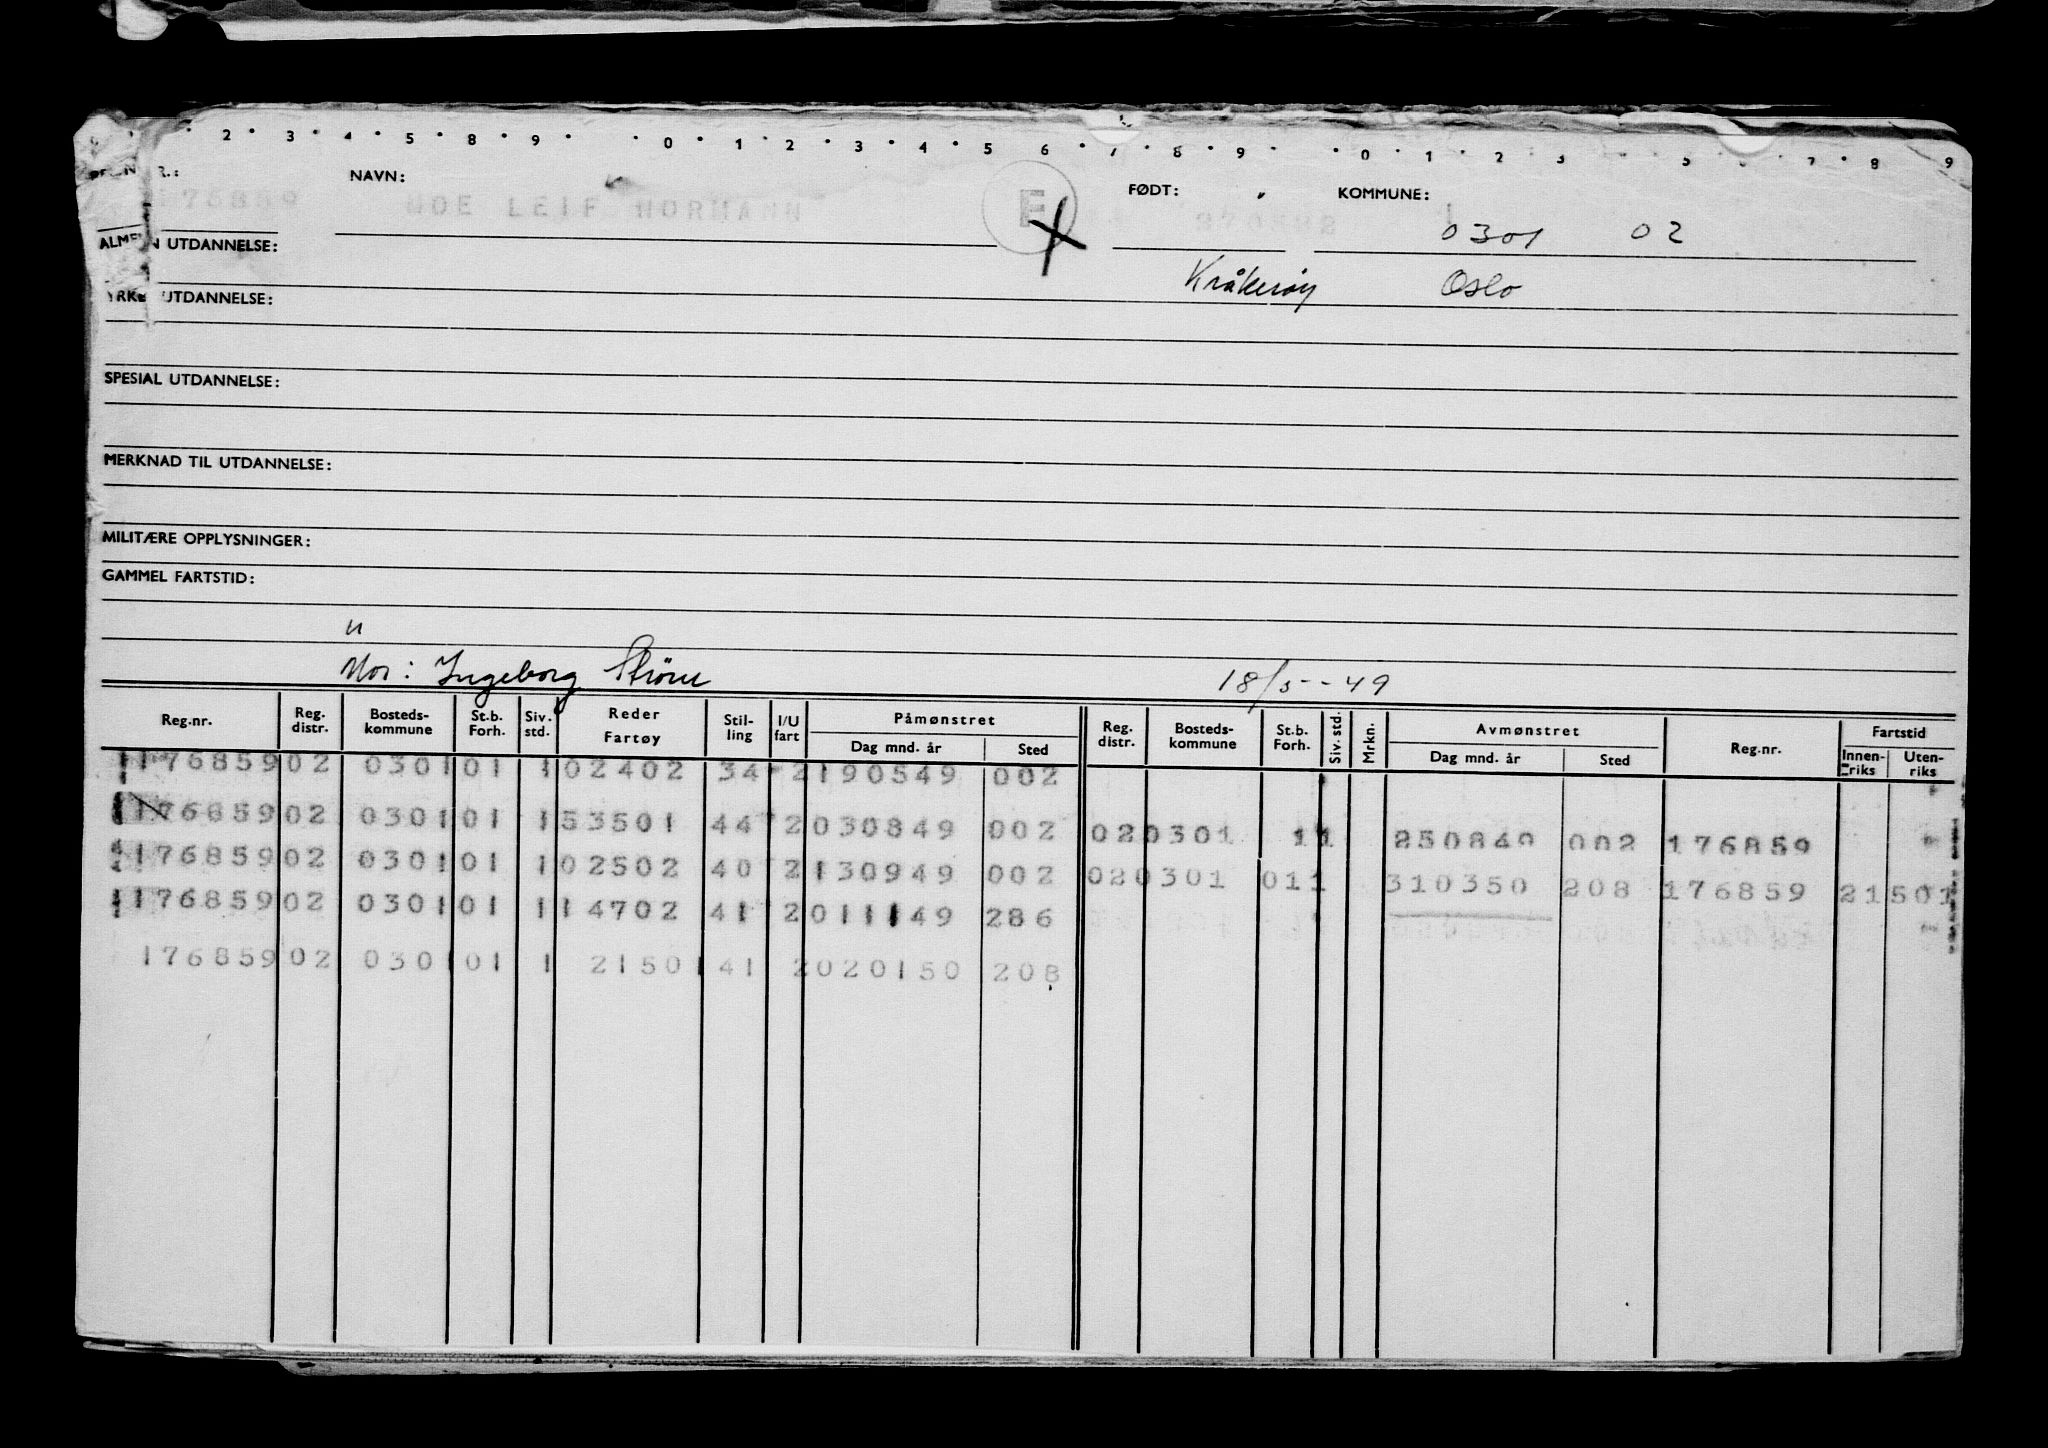 2 3 4 5 8 9 0 1 2 3 4 5 6 7 8 9 0 1 2 3 5 6 7 8 9
NAVN: FØDT: KOMMUNE:
176859 MOE LEIF NORMANN E 0301 02
ALMEN UTDANNELSE: Kråkerøy Oslo
YRKE UTDANNELSE:
SPESIAL UTDANNELSE:
MERKNAD TIL UTDANNELSE:
MILITÆRE OPPLYSNINGER:
GAMMEL FARTSTID:
Mor: Ingeborg Strøm 18/5--49
Reg.nr. Reg. distr. Bosteds-kommune St.b. Forh. Siv. std. Reder Fartøy Stil-ling I/U fart Påmønstret Dag mnd. år Sted Reg. distr. Bosteds-kommune St.b. Forh. Siv. std. Mrkn. Avmønstret Dag mnd. år Sted Reg.nr. Fartstid Innen-riks Uten-riks
176859 02 0301 01 1 02402 34 2 190549 002
176859 02 0301 01 1 53501 44 2 030849 002 02 0301 11 250849 002 176859
176859 02 0301 01 1 02502 40 2 130949 002 02 0301 01 1 310350 208 176859 21501
176859 02 0301 01 1 14702 41 2 011149 286
176859 02 0301 01 1 21501 41 2 020150 208